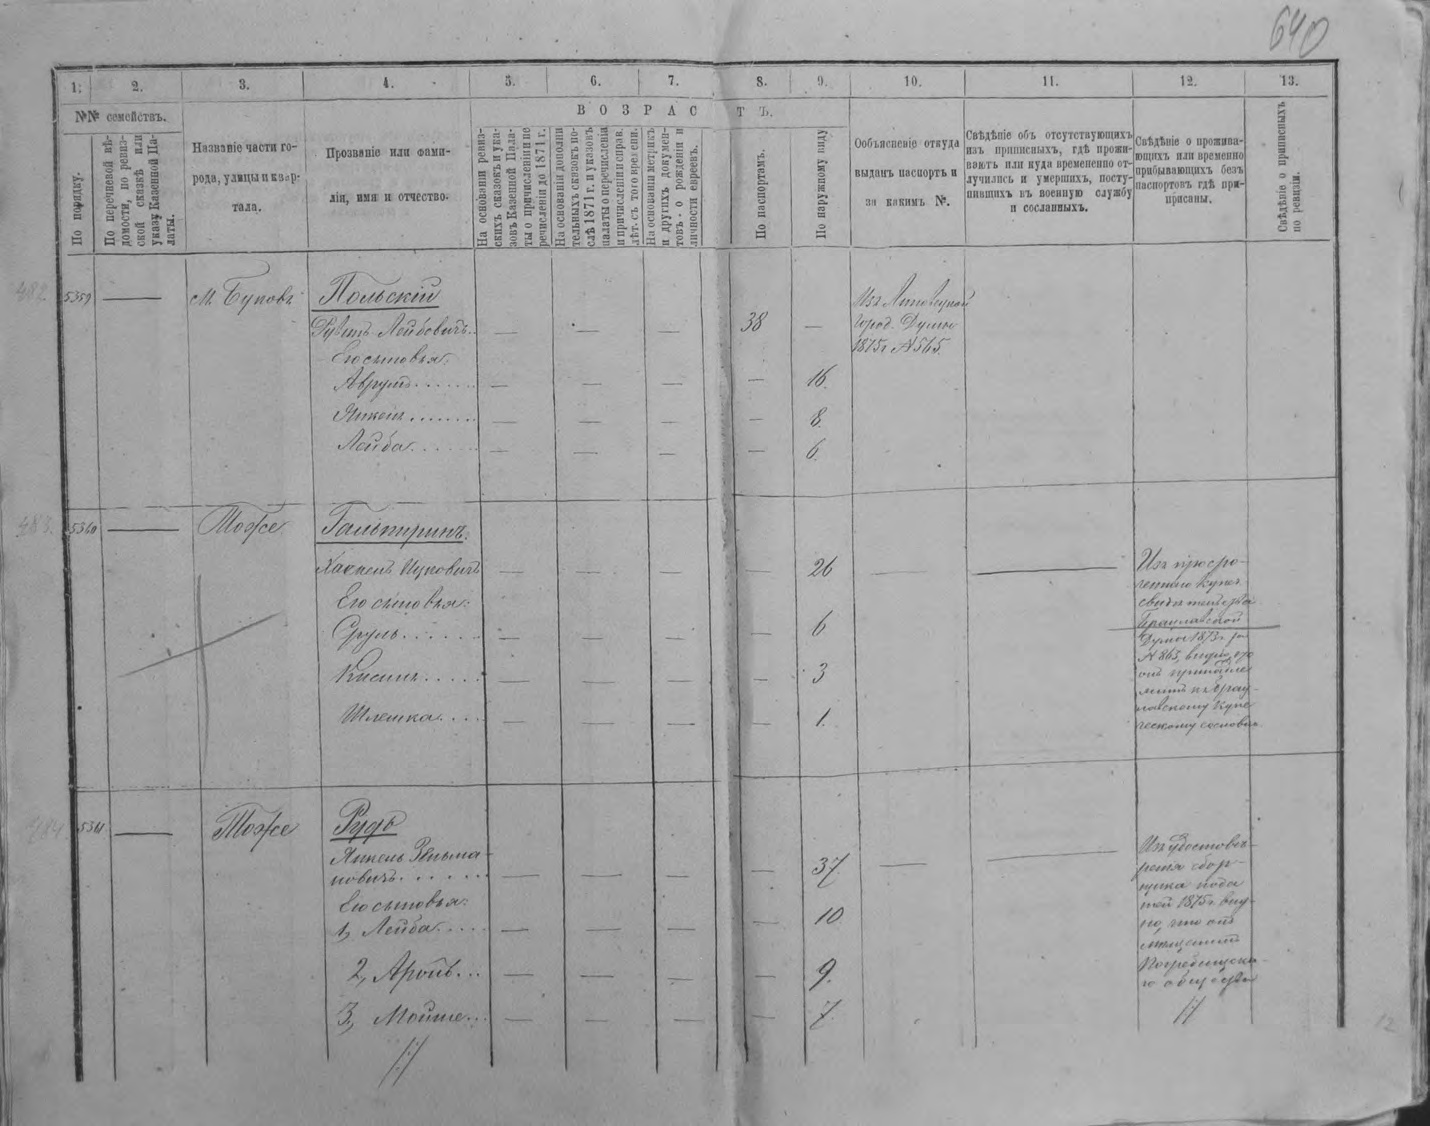 640
1. 2. 3. 4. 5. 6. 7. 8. 9. 10. 11. 12. 13.
№№ семействъ.
По порядку.
По перечневой вѣ-
домости, по ревиз-
ской сказкѣ или
указу Казенной Па-
латы.
Названіе части го-
рода, улицы и квар-
тала.
Прозваніе или фами-
лія, имя и отчество.
ВОЗРАСТЪ.
На основаніи ревиз-
скихъ сказокъ и ука-
зовъ Казенной Пала-
ты о причисленіи и пе
речисленіи до 1871 г.
На основаніи дополни
тельныхъ сказокъ по-
слѣ 1871 г. и указовъ
палаты о перечисленіи
и причисленіи и справ.
лѣт. съ того времени.
На основаніи метрикъ
и другихъ докумен-
товъ о рожденіи и
личности евреевъ.
По паспортамъ.
По наружному виду
Объясненіе откуда
выданъ паспортъ и
за какимъ №.
Свѣдѣніе объ отсутствующихъ
изъ приписныхъ, гдѣ прожи-
ваютъ или куда временно от-
лучились и умершихъ, посту-
пившихъ въ военную службу
и сосланныхъ.
Свѣдѣніе о прожива-
ющихъ или временно
прибывающихъ безъ
паспортовъ гдѣ при-
писаны.
Свѣдѣніе о приписныхъ
по ревизіи.
482 5359 — м. Буковъ Польскій
Лейбовичъ — — — 38 —
Изъ
Город. Думы
1875 г № 565
Его сыновья:
Аврумъ — — — — 16.
Янкель — — — — 8.
Лейба — — — — 6.
483. 5360 — Тоже Гальтринъ.
Ицковичъ — — — — 26 — —
Его сыновья:
Сруль — — — — 6
— — — — 3
Шлемка — — — — 1.
Изъ просро-
ченнаго купеч.
свидѣтельства
Брацлавской
Думы 1873 г. за
№ 863, видно, что
онъ принадле
житъ къ Брац-
лавскому Купе
ческому сословію
484 5361 — Тоже Рудь
Янкель
новичъ — — — — 37. — —
Его сыновья:
1, Лейба — — — — 10
2, Аронъ — — — — 9.
3, Мойше — — — — 7.
Изъ удостовѣ-
ренія сбор-
щика пода
тей 1875 г. вид-
но, что онъ
мѣщанинъ
Погребищска-
го общества
12